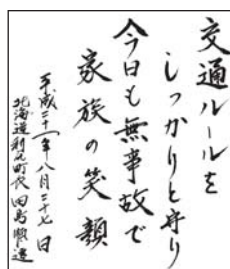 交通ルールを
しっかりと守り
今日も無事故で
家族の笑顔
平成二十一年八月二十七日
北海道利尻町長 田島順逸